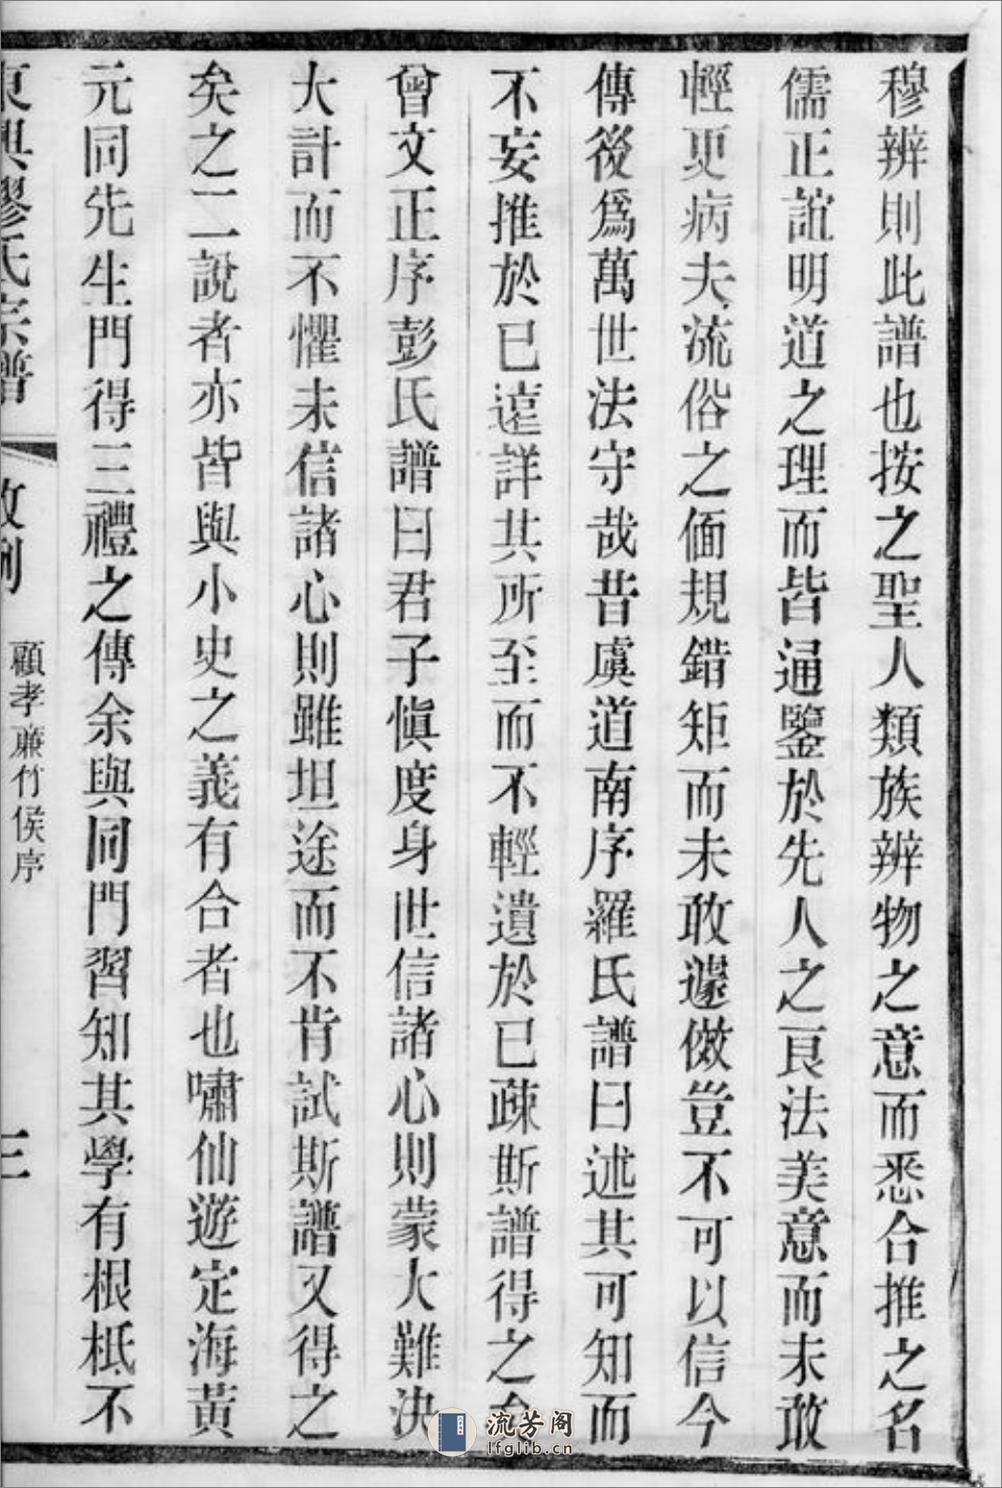 穆辨則此譜也按之聖人類族辨物之意而悉合推之名
儒正誼明道之理而皆通鑒於先人之良法美意而未敢
輕更病夫流俗之偭規錯矩而未敢遽倣豈不可以信今
傳後爲萬世法守哉昔虞道南序羅氏譜曰述其可知而
不妄推於已遠詳其所至而不輕遺於已疎斯譜得之
曾文正序彭氏譜曰君子愼度身世信諸心則蒙大難決
大計而不懼未信諸心則雖坦途而不肯試斯譜又得之
矣之二說者亦皆與小史之義有合者也嘯仙遊定海黃
元同先生門得三禮之傳余與同門習知其學有根柢不
東興繆氏宗譜
敘例
顧孝廉竹侯序
三
流芳阁
lfglib.cn